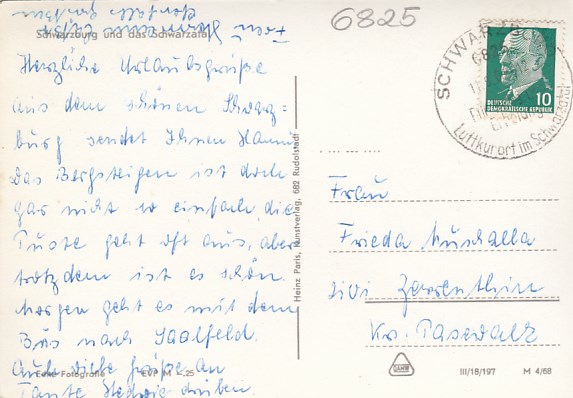 6825
Schwarzburg und das Schwarzatal
Herzliche Urlaubsgrüße
aus dem schönen Schwarz=
burg sendet Ihnen Hanni
Das Bergsteigen ist doch
gar nicht so einfach, die
Puste geht oft aus, aber
trotzdem ist es schön.
Morgen geht es mit dem
Bus nach Saalfeld.
Auch viele Grüße an
Tante Hedwig drüben.
Echt Fotografie EVP M -.25
Heinz Paris, Kunstverlag, 682 Rudolstadt
SCHWARZBURG
Luftkurort im Schwarzatal
10
DEUTSCHE
DEMOKRATISCHE REPUBLIK
Frau
Frieda Muschalla
2101 Zerrenthin
Kr. Pasewalk
III/18/197 M 4/68